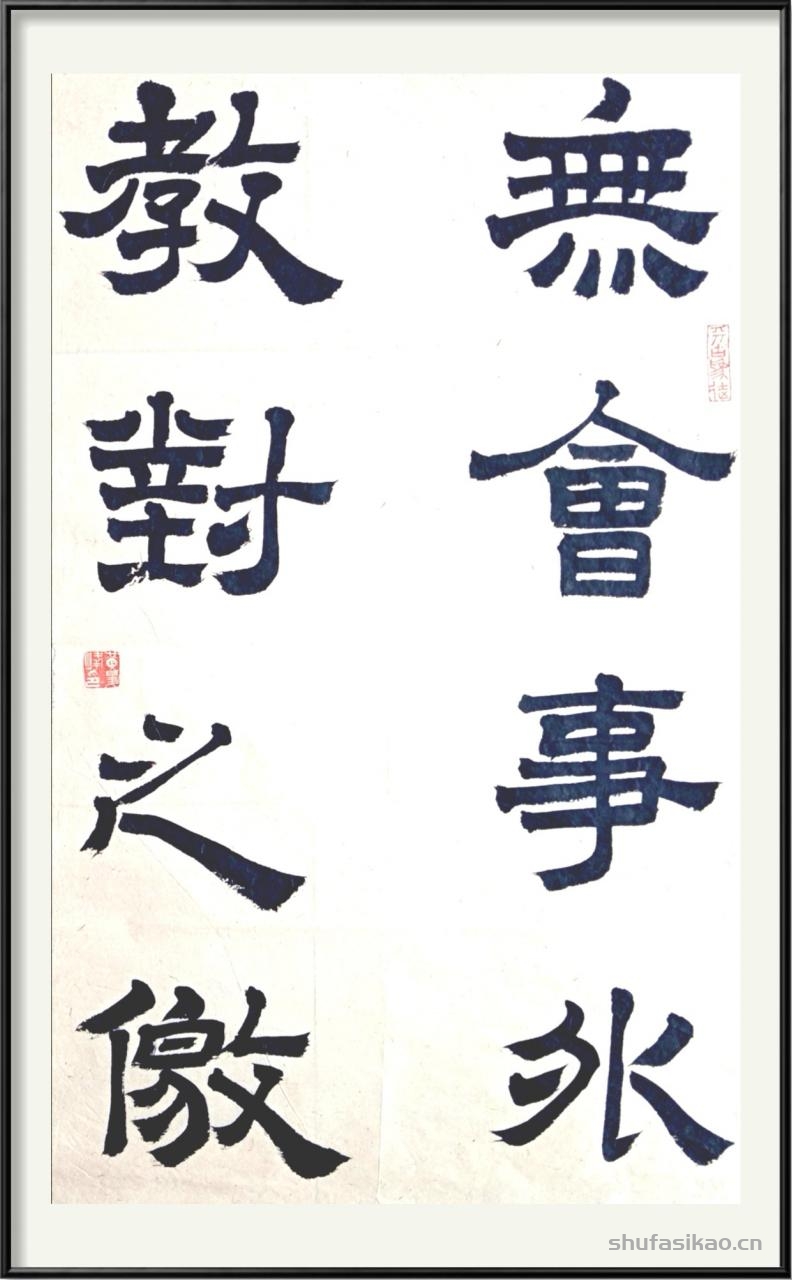 無會事外
教對之儌
shufasikao.cn